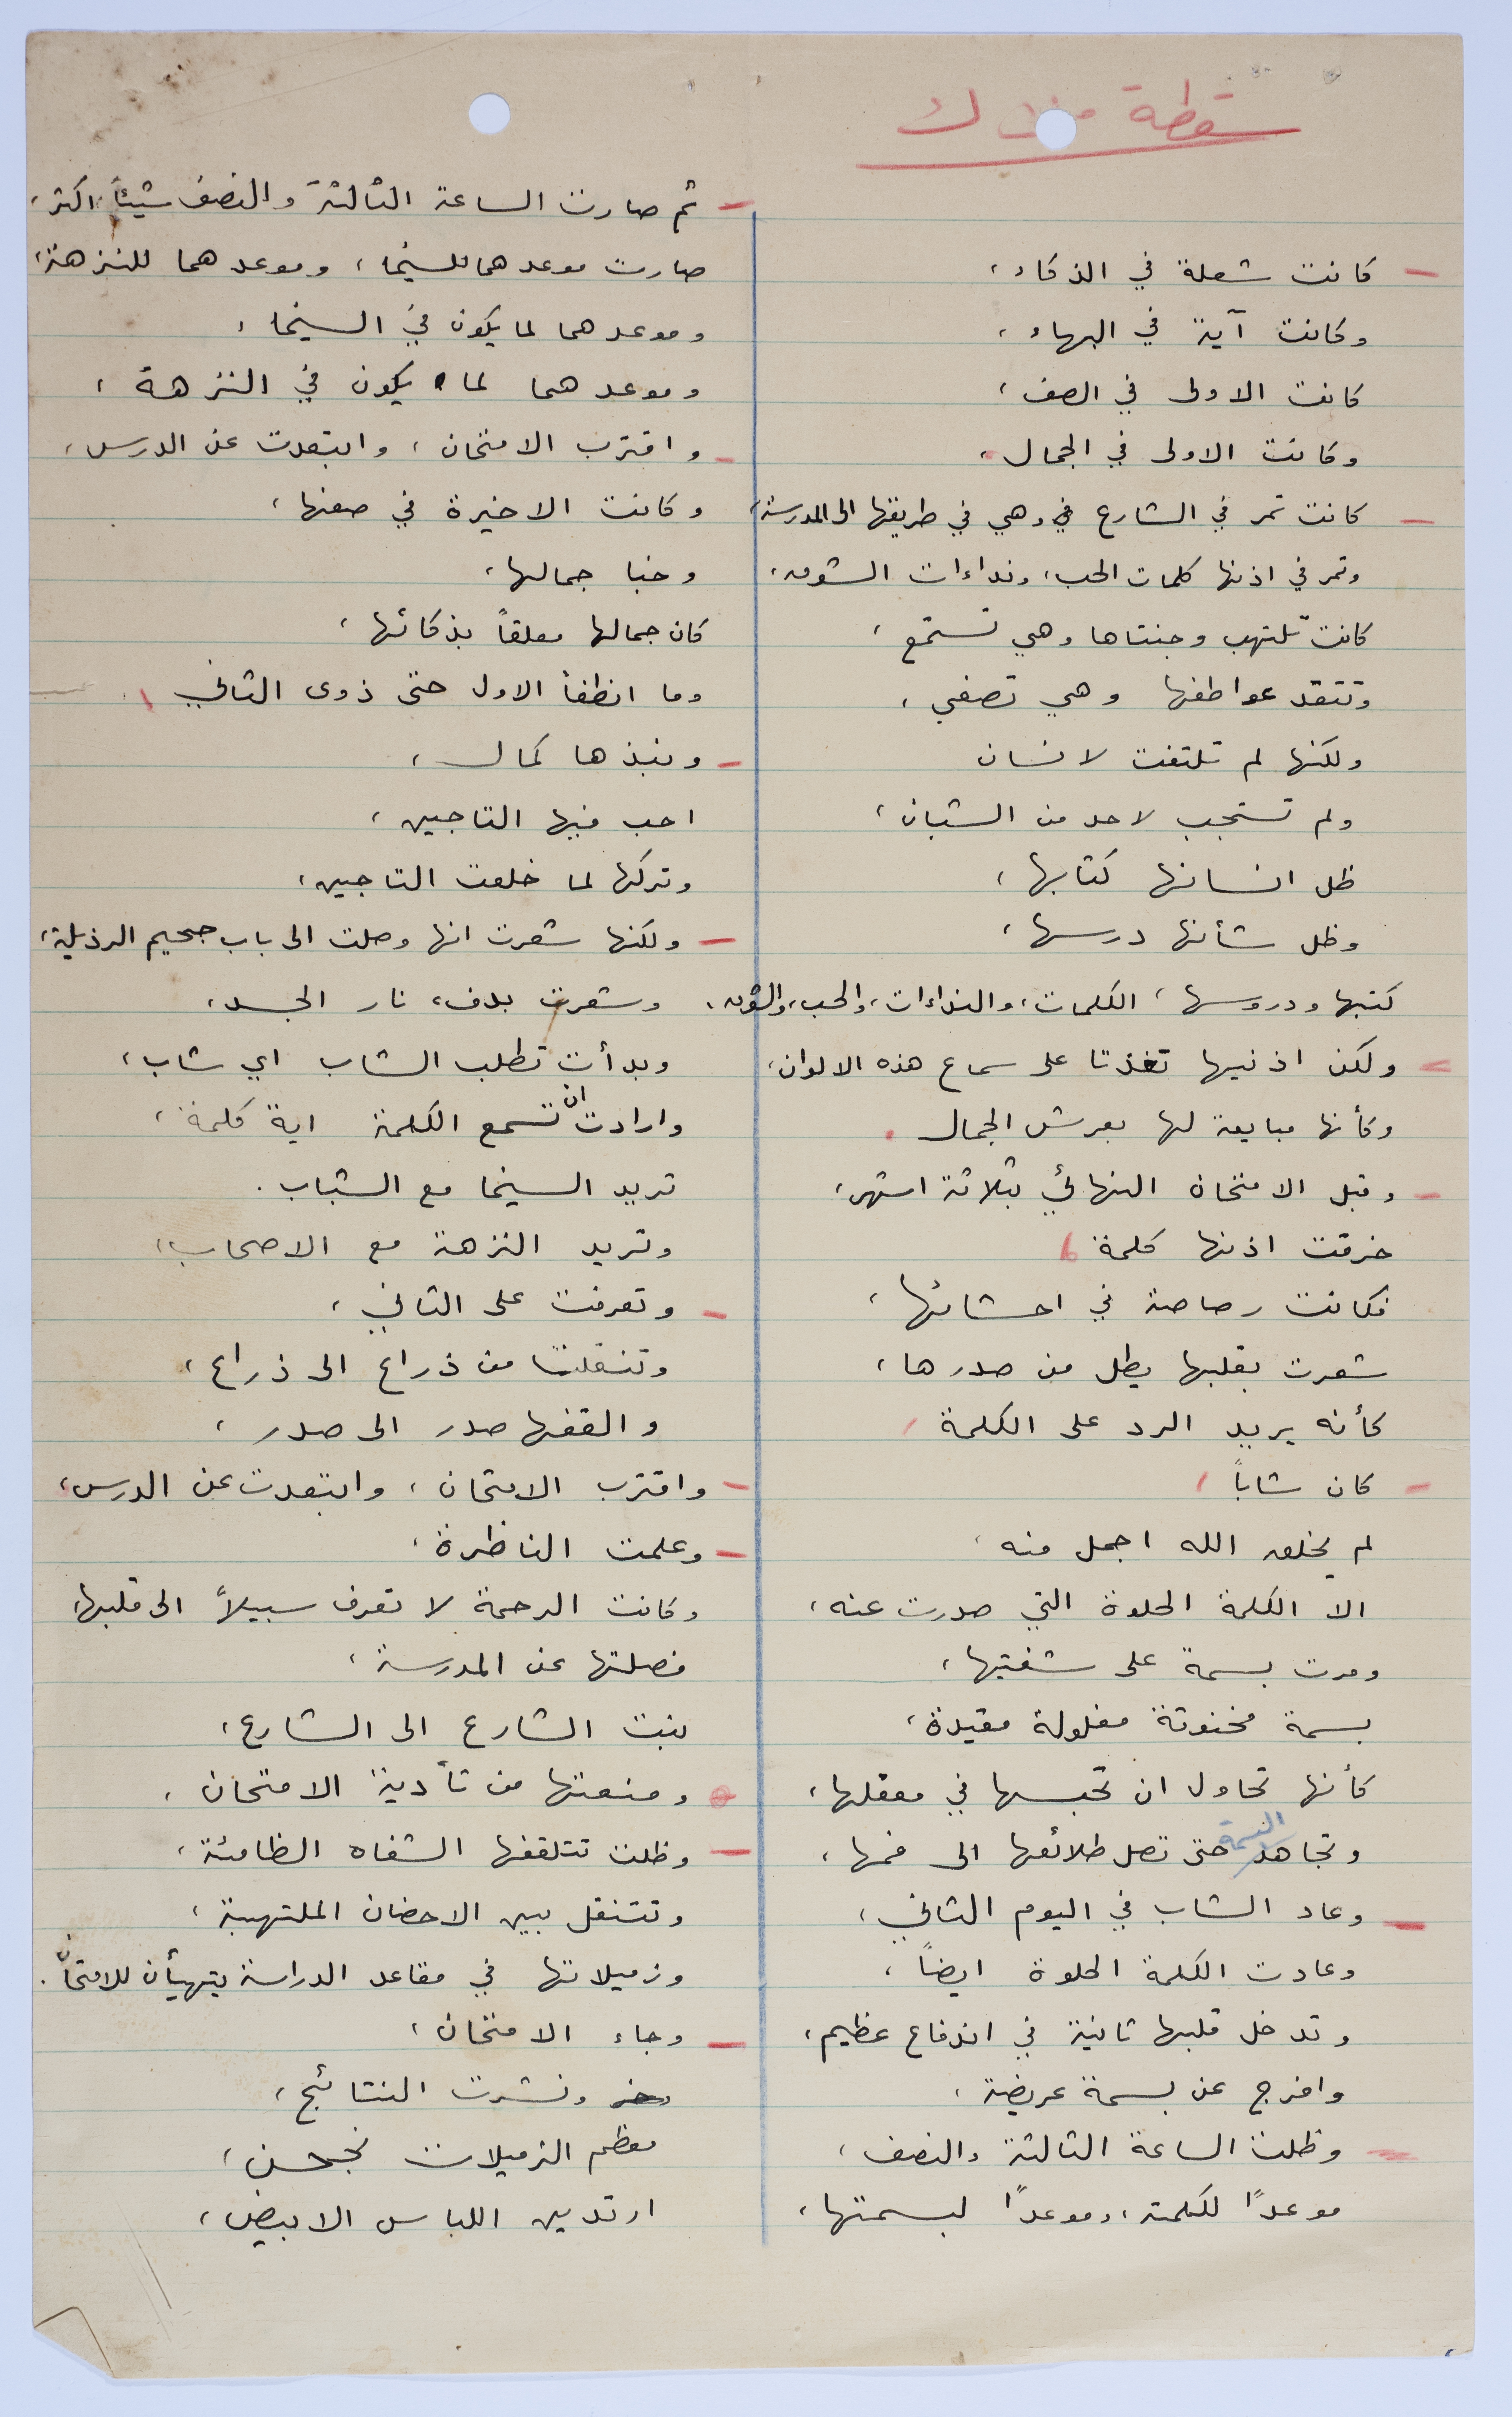 سقطة ملاك
- كانت شعلة في الذكاء،
وكانت آية في البهاء،
كانت الاولى في الصف،
وكانت الاولى في الجمال.
- كانت تمر في الشارع وهي في طريقها الى المدرسة،
وتمر في اذنها كلمات الحب، ونداءات الشوق،
كانت تلتهب وجنتاها وهي تستمع،
وتتقد عواطفها وهي تصغي،
ولكنها لم تلتفت لانسان
ولم تستجب لاحد من الشبان،
ظل انسانها كتابها،
وظل شأنها درسها،
كتبها ودروسها، الكلمات، والنداءات، والحب، والشوق.
- ولكن اذنيها تغذتا على سماع هذه الالوان،
وكأنها مبايعة لها بعرش الجمال.
- وقبل الامتحان النهائي بثلاثة اشهر،
خرقت اذنها كلمة،
فكانت رصاصة في احشائها،
شعرت بقلبها يطل من صدرها،
كأنه يريد الرد على الكلمة
- كان شاباً
لم يخلق الله اجمل منه،
الا الكلمة الحلوة التي صدرت عنه،
ومرت بسمة على شفتيها،
بسمة مخنوقة مغلولة مقيدة،
كأنها تحاول ان تحبسها في معقلها،
وتجاهد البسمة حتى تصل طلائعها الى فمها،
- وعاد الشاب في اليوم الثاني،
وعادت الكلمة الحلوة ايضاً،
وتدخل قلبها ثانية في اندفاع عظيم،
وافرج عن بسمة عريضة،
- وظلت الساعة الثالثة والنصف،
موعداً لكلمته، وموعداً لبسمتها،
- ثم صارت الساعة الثالثة والنصف شيئاً اكثر،
صارت موعدهما للسينما، وموعدهما للنزهة،
وموعدهما لما يكون في السينما،
وموعدهما لما يكون في النزهة،
- واقترب الامتحان، وابتعدت عن الدرس،
وكانت الاخيرة في صفها،
وخبا جمالها،
كان جمالها معلقاً بذكائها،
وما انطفأ الاول حتى ذوى الثاني
- ونبذها كمال،
احب فيها التاجين،
وتركها لما خلعت التاجين،
- ولكنها شعرت انها وصلت الى باب جحيم الرذيلة،
وشعرت بدفء نار الجسد،
وبدأت تطلب الشاب اي شاب،
وارادت ان تسمع الكلمة اية كلمة،
تريد السينما مع الشباب.
وتريد النزهة مع الاصحاب،
- وتعرفت على الثاني،
وتنقلت من ذراع الى ذراع،
والقفها صدر الى صدر،
- واقترب الامتحان، وابتعدت عن الدرس،
- وعلمت الناظرة،
وكانت الرحمة لا تعرف سبيلاً الى قلبها،
فصلتها عن المدرسة،
بنت الشارع الى الشارع،
ومنعتها من تأدية الامتحان.
- وظلت تتلقفها الشفاه الظامئة،
وتتنقل بين الاحضان الملتهبة،
وزميلاتها في مقاعد الدراسة يتهيأن للامتحان.
- وجاء الامتحان،
ونشرت النتائج،
معظم الزميلات نجحن،
ارتدين اللباس الابيض،